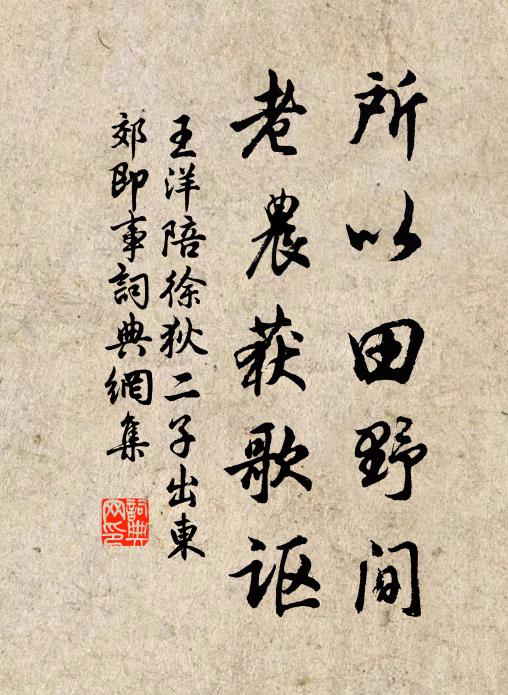 所以田野间
老農获歌讴
王洋陪徐狄二子出東
郊即事詞典網集
詞典
网印